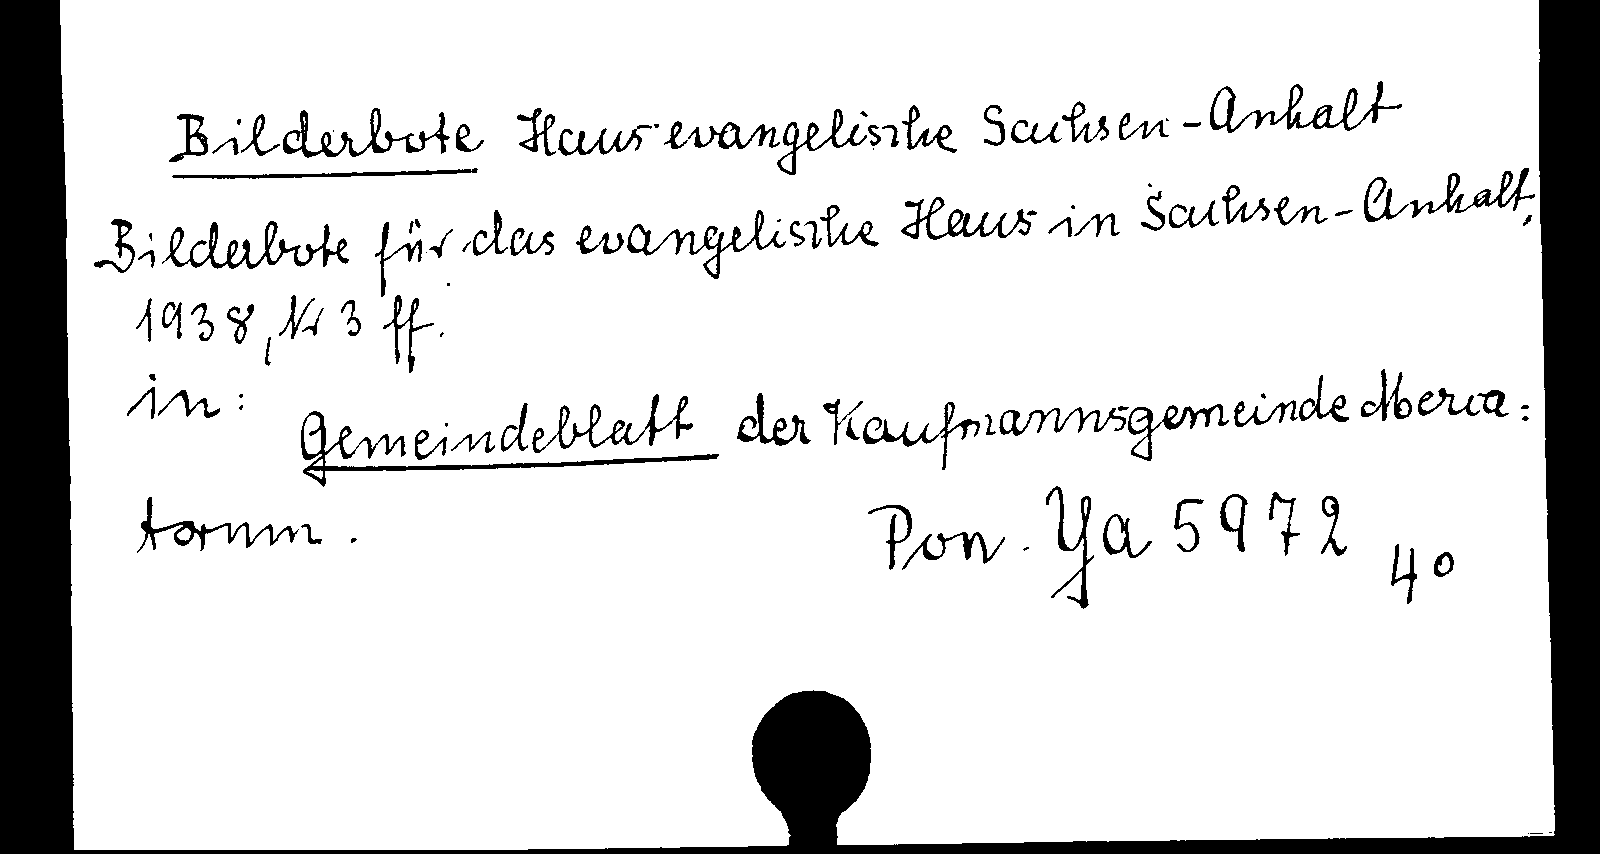 Bilderbote Haus evangelische Sachsen-Anhalt
Bilderbote für das evangelische Haus in Sachsen-Anhalt,
1938, Nr 3 ff.
in:
Gemeindeblatt der Kaufmannsgemeinde Merca:
torum.
Pon. Ya 5972 4°